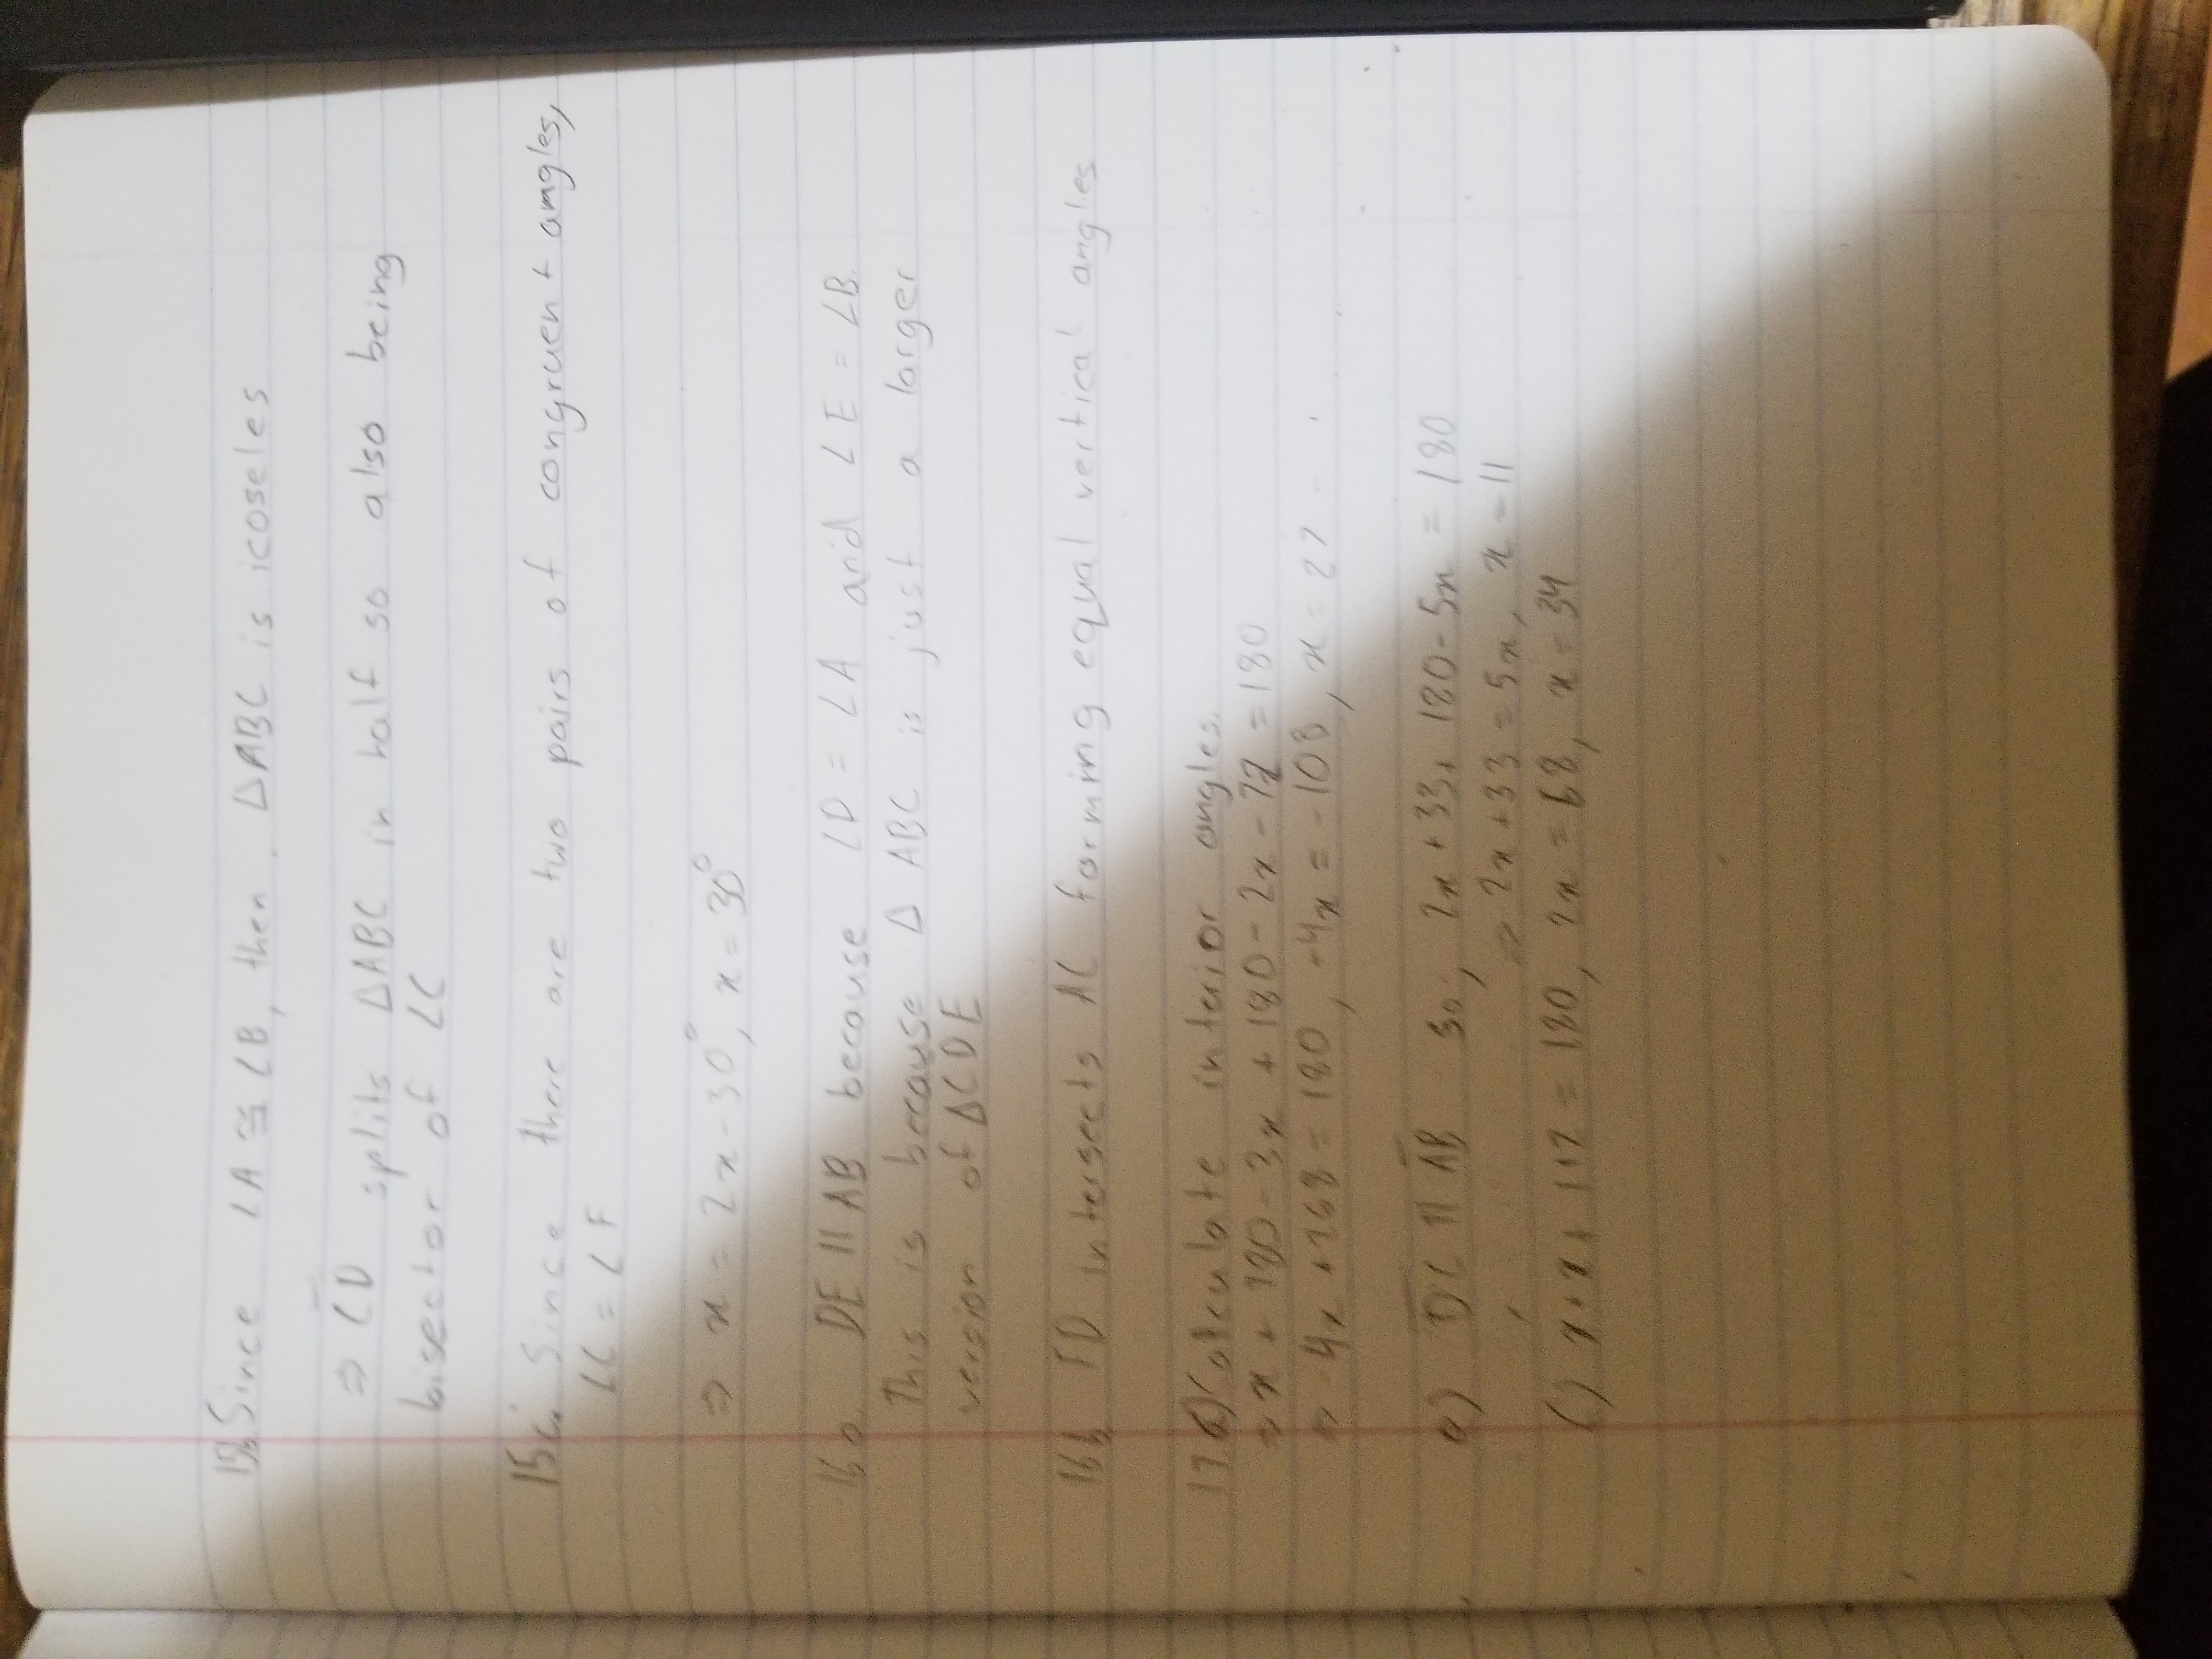 15b. Since ∠A ≅ ∠B, then ΔABC is icoseles
⇒ CD splits ΔABC in half so also being
bisector of ∠C
15c. Since there are two pairs of congruent angles,
∠C = ∠F
⇒ x = 2x - 30°, x = 30°
16a. DE || AB because ∠D = ∠A and ∠E = ∠B.
This is because Δ ABC is just a larger
version of ΔCDE
16b FD intersects AC forming equal vertical angles
17. Calculate interior angles.
⇒ x + 180 - 3x + 180 - 2x - 72 = 180
⇒ -4x + 288 = 180, -4x = -108, x = 27
a) DC || AB so, 2x + 33 + 180 - 5x = 180
⇒ 2x + 33 = 5x, x = 11
c) x + x + 112 = 180, 2x = 68, x = 34